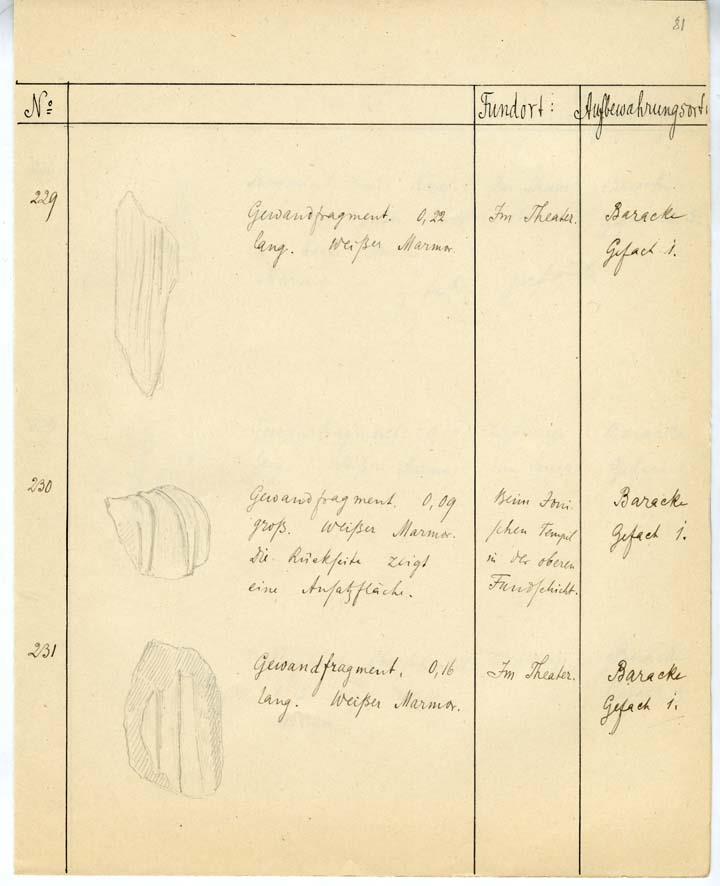 81
No Fundort: Aufbewahrungsort:
229 Gewandfragment. 0,22 Im Theater. Baracke
lang. Weißer Marmor. Gefach 1.
230 Gewandfragment. 0,09 Beim Joni- Baracke
groß. Weißer Marmor. schen Tempel Gefach 1.
Die Rückseite zeigt in der oberen
eine Ansatzfläche. Fundschicht.
231 Gewandfragment. 0,16 Im Theater. Baracke
lang. Weißer Marmor. Gefach 1.